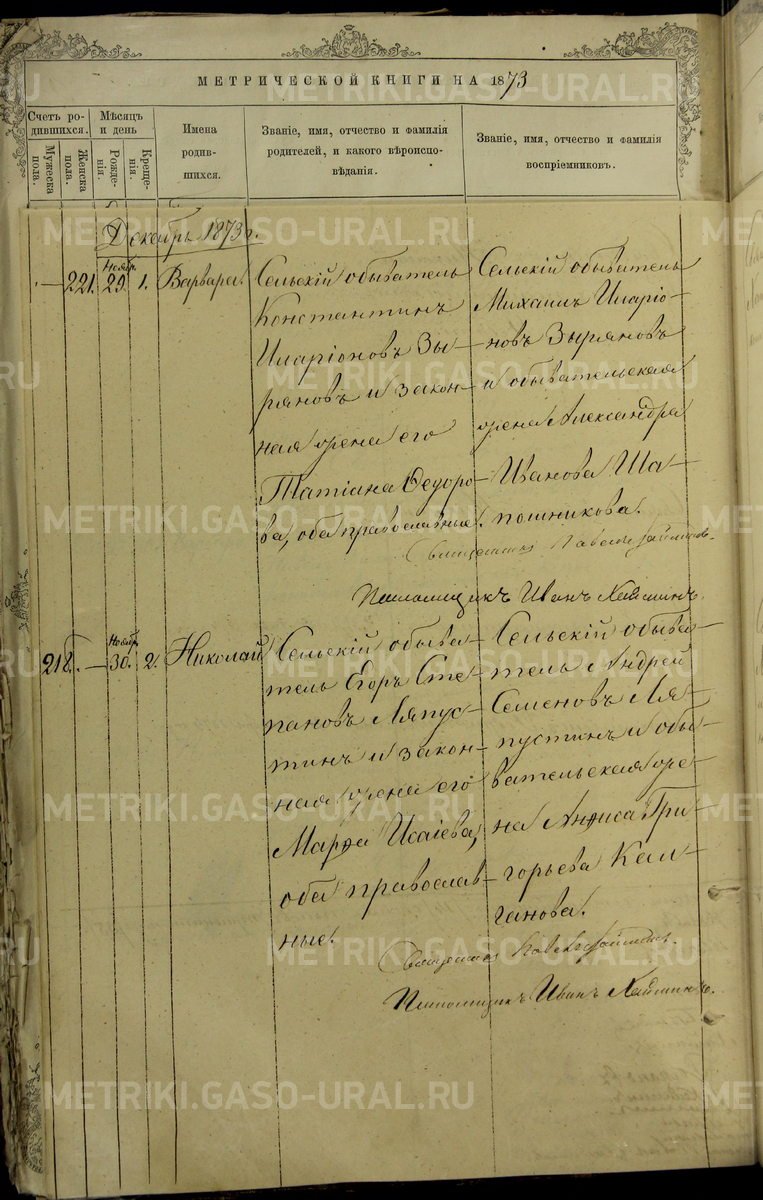 МЕТРИЧЕСКОЙ КНИГИ НА 1873
Счетъ родившихся.
Мужеска пола.
Женска пола.
Мѣсяцъ и день
Рожденія.
Крещенія.
Имена родившихся.
Званіе, имя, отчество и фамилія родителей, и какого вѣроисповѣданія.
Званіе, имя, отчество и фамилія воспріемниковъ.
Декабрь 1873 г.
— 221. Ноябр. 29. 1. Варвара.
Сельскій обыватель
Константинъ
Иларіоновъ Зы-
ряновъ и закон-
ная жена его
Татіана Ѳедоро-
ва, оба православные.
Сельскій обыватель
Михаилъ Иларіо-
новъ Зыряновъ
и обывательская
жена Александра
Иванова Ша-
пошникова.
Священникъ Павелъ
Псаломщикъ Иванъ
218. — Ноябр. 30. 2. Николай
Сельскій обыва-
тель Егоръ Сте-
пановъ Ляпус-
тинъ и закон-
ная жена его
Марѳа Исаіева,
оба православ-
ные.
Сельскій обыва-
тель Андрей
Семеновъ Ля-
пустинъ и обы-
вательская же-
на Анфиса Гри-
горьева Кал-
ганова.
Священникъ Павелъ
Псаломщикъ Иванъ
METRIKI.GASO-URAL.RU